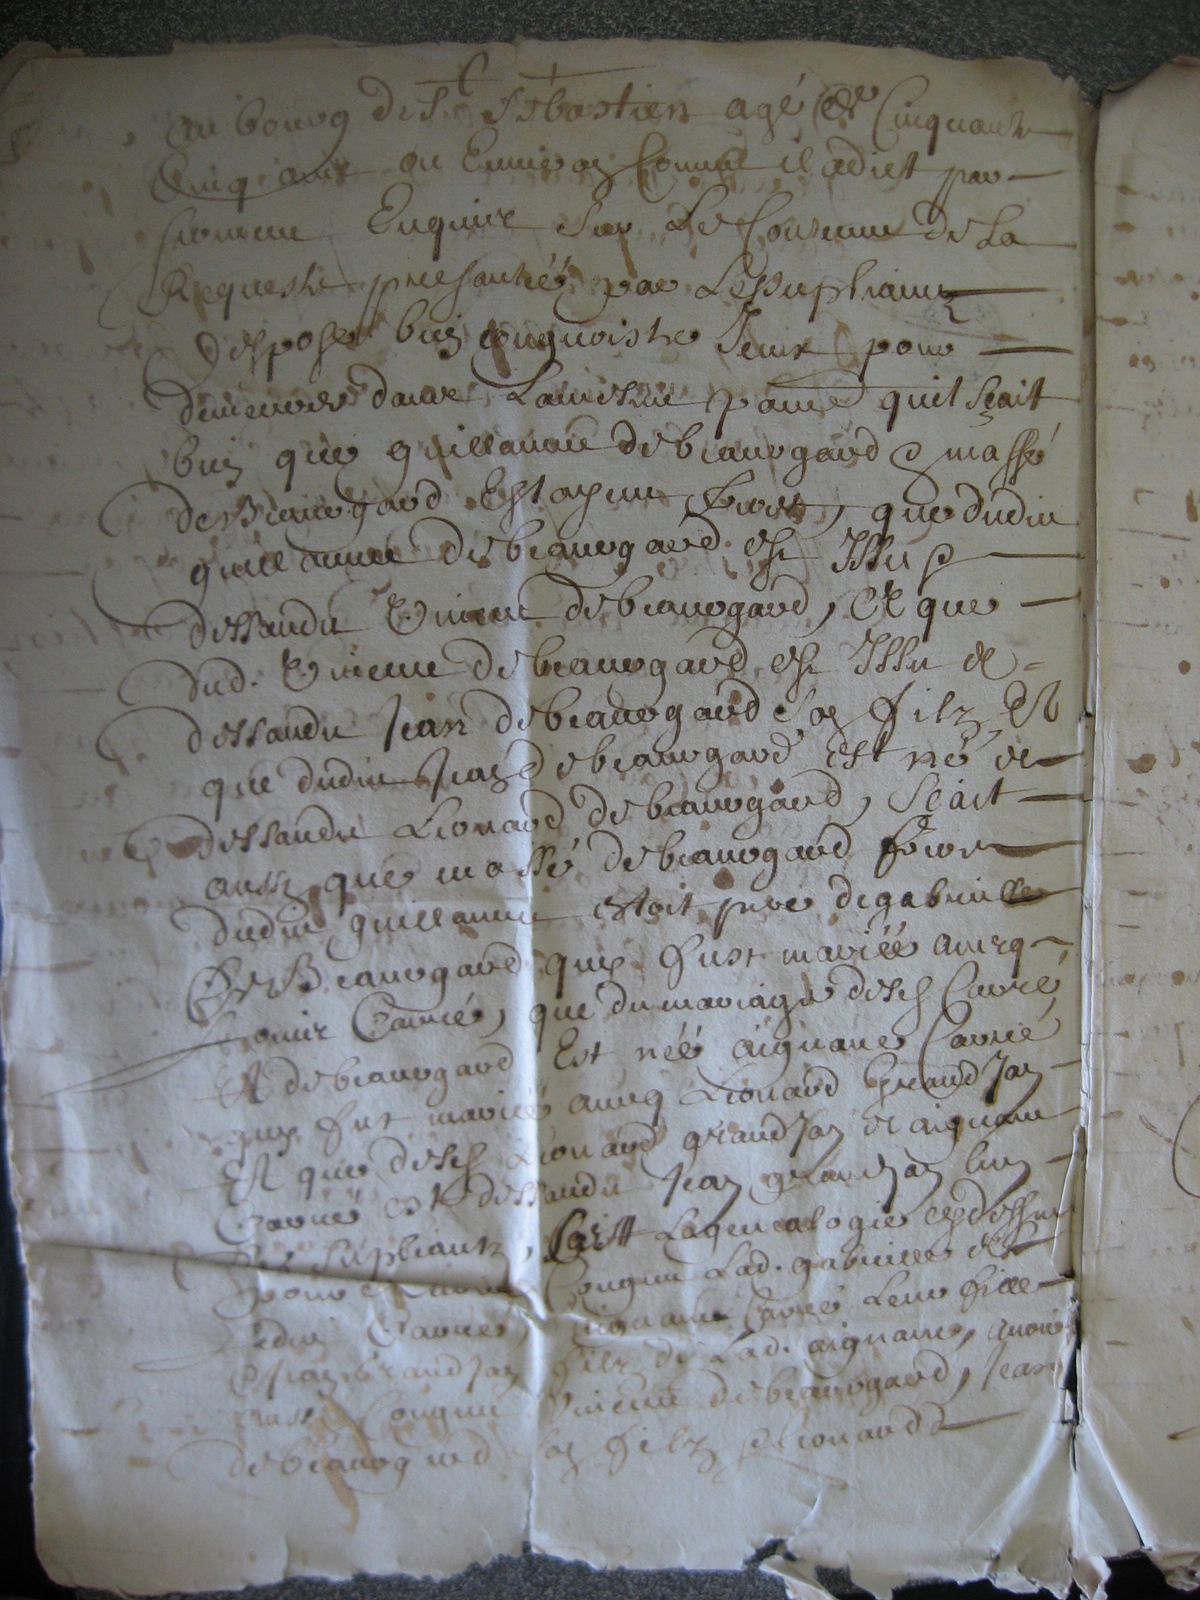 au bourg de St Sebastien agé de Cinquante
Cinq ans ou Environ Comme il a dict par
serment Enquire sur Le Contenu de La
Requeste presantée par Les suplians
despose bien cognoistre Iceux pour
demeurer dans La mesme parr quil sçait
bien que guillaume de beauregard & massé
de Beauregard Estoyent freres, que dudit
guillaume de beauregard est Issu &
dessandu Vincent de beauregard, Et que
dud. Vincent de beauregard est Issu et
dessandu Jean de beauregard son filz, Et
que dudit Jean de beauregard Est né et
dessandu Lionard de beauregard, Scait
aussy que massé de beauregard frere
dudit guillaume estoit pere de gabrielle
de Beauregard quy fust mariée avecq
Carrié, que du mariage desd Carrié
Et de beauregard Est néé aignane Carrié
quy fut mariéé avecq Lionard Grand Jan
Et que desd Lionard grand Jan et aignane
Carrié est dessandu Jean grand Jan lun
des supliants, Scait La genealogie cy dessus
pour Avoir Congnu Lad. gabrielle et
Ledit Carrié, aignane Carrié Leur fille
& Jean Grand Jan filz de Lad. aignane, avoir
aussy Congnu Vincent de beauregard, Jean
de beauregard son filz & Lionard d